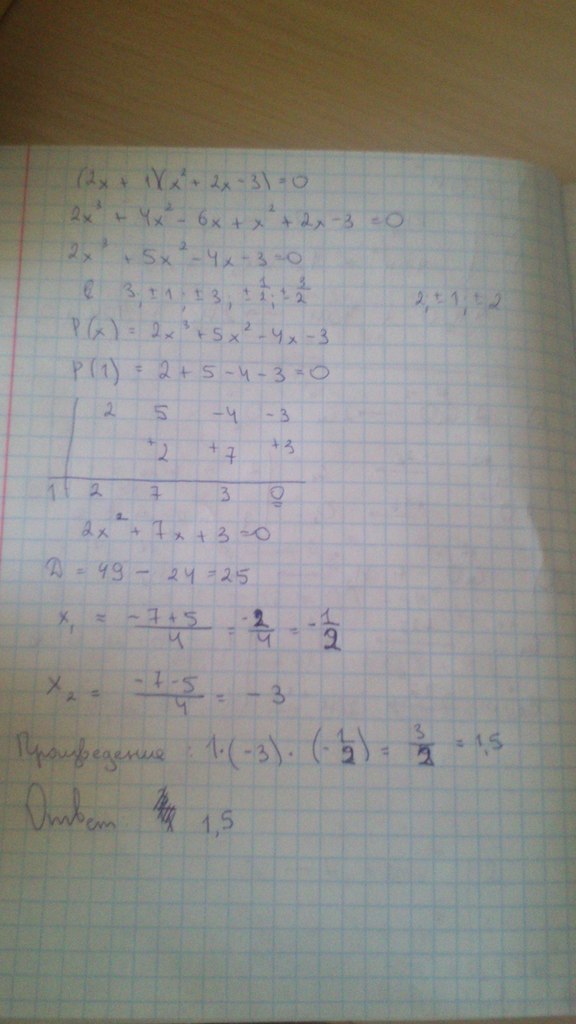 (2x + 1)(x² + 2x - 3) = 0
2x³ + 4x² - 6x + x² + 2x - 3 = 0
2x³ + 5x² - 4x - 3 = 0
3, ±1; ±3, ±1/2; ±3/2 2, ±1, ±2
P(x) = 2x³ + 5x² - 4x - 3
P(1) = 2 + 5 - 4 - 3 = 0
2 5 -4 -3
+2 +7 +3
1 2 7 3 0
2x² + 7x + 3 = 0
D = 49 - 24 = 25
x₁ = (-7+5)/4 = -2/4 = -1/2
x₂ = (-7-5)/4 = -3
Произведения : 1·(-3)·(-1/2) = 3/2 = 1,5
Ответ 1,5